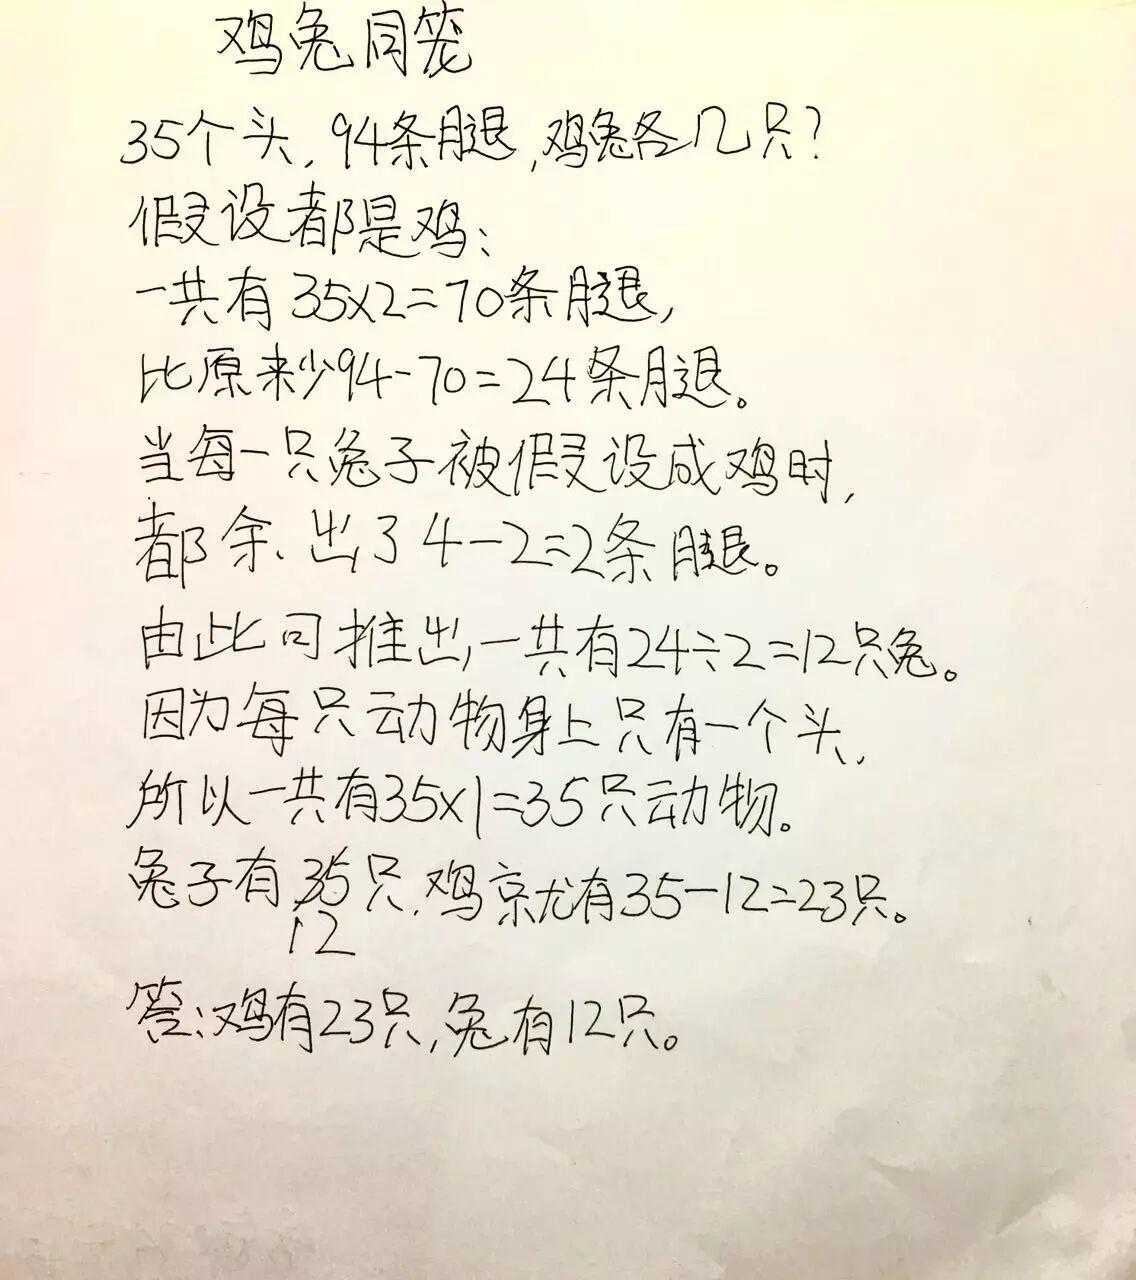 鸡兔同笼
35个头,94条腿,鸡兔各几只?
假设都是鸡:
一共有35×2=70条腿,
比原来少94-70=24条腿。
当每一只兔子被假设成鸡时,
都余出了4-2=2条腿。
由此可推出,一共有24÷2=12只兔。
因为每只动物身上只有一个头,
所以一共有35×1=35只动物。
兔子有35只,鸡就有35-12=23只。
12
答:鸡有23只,兔有12只。